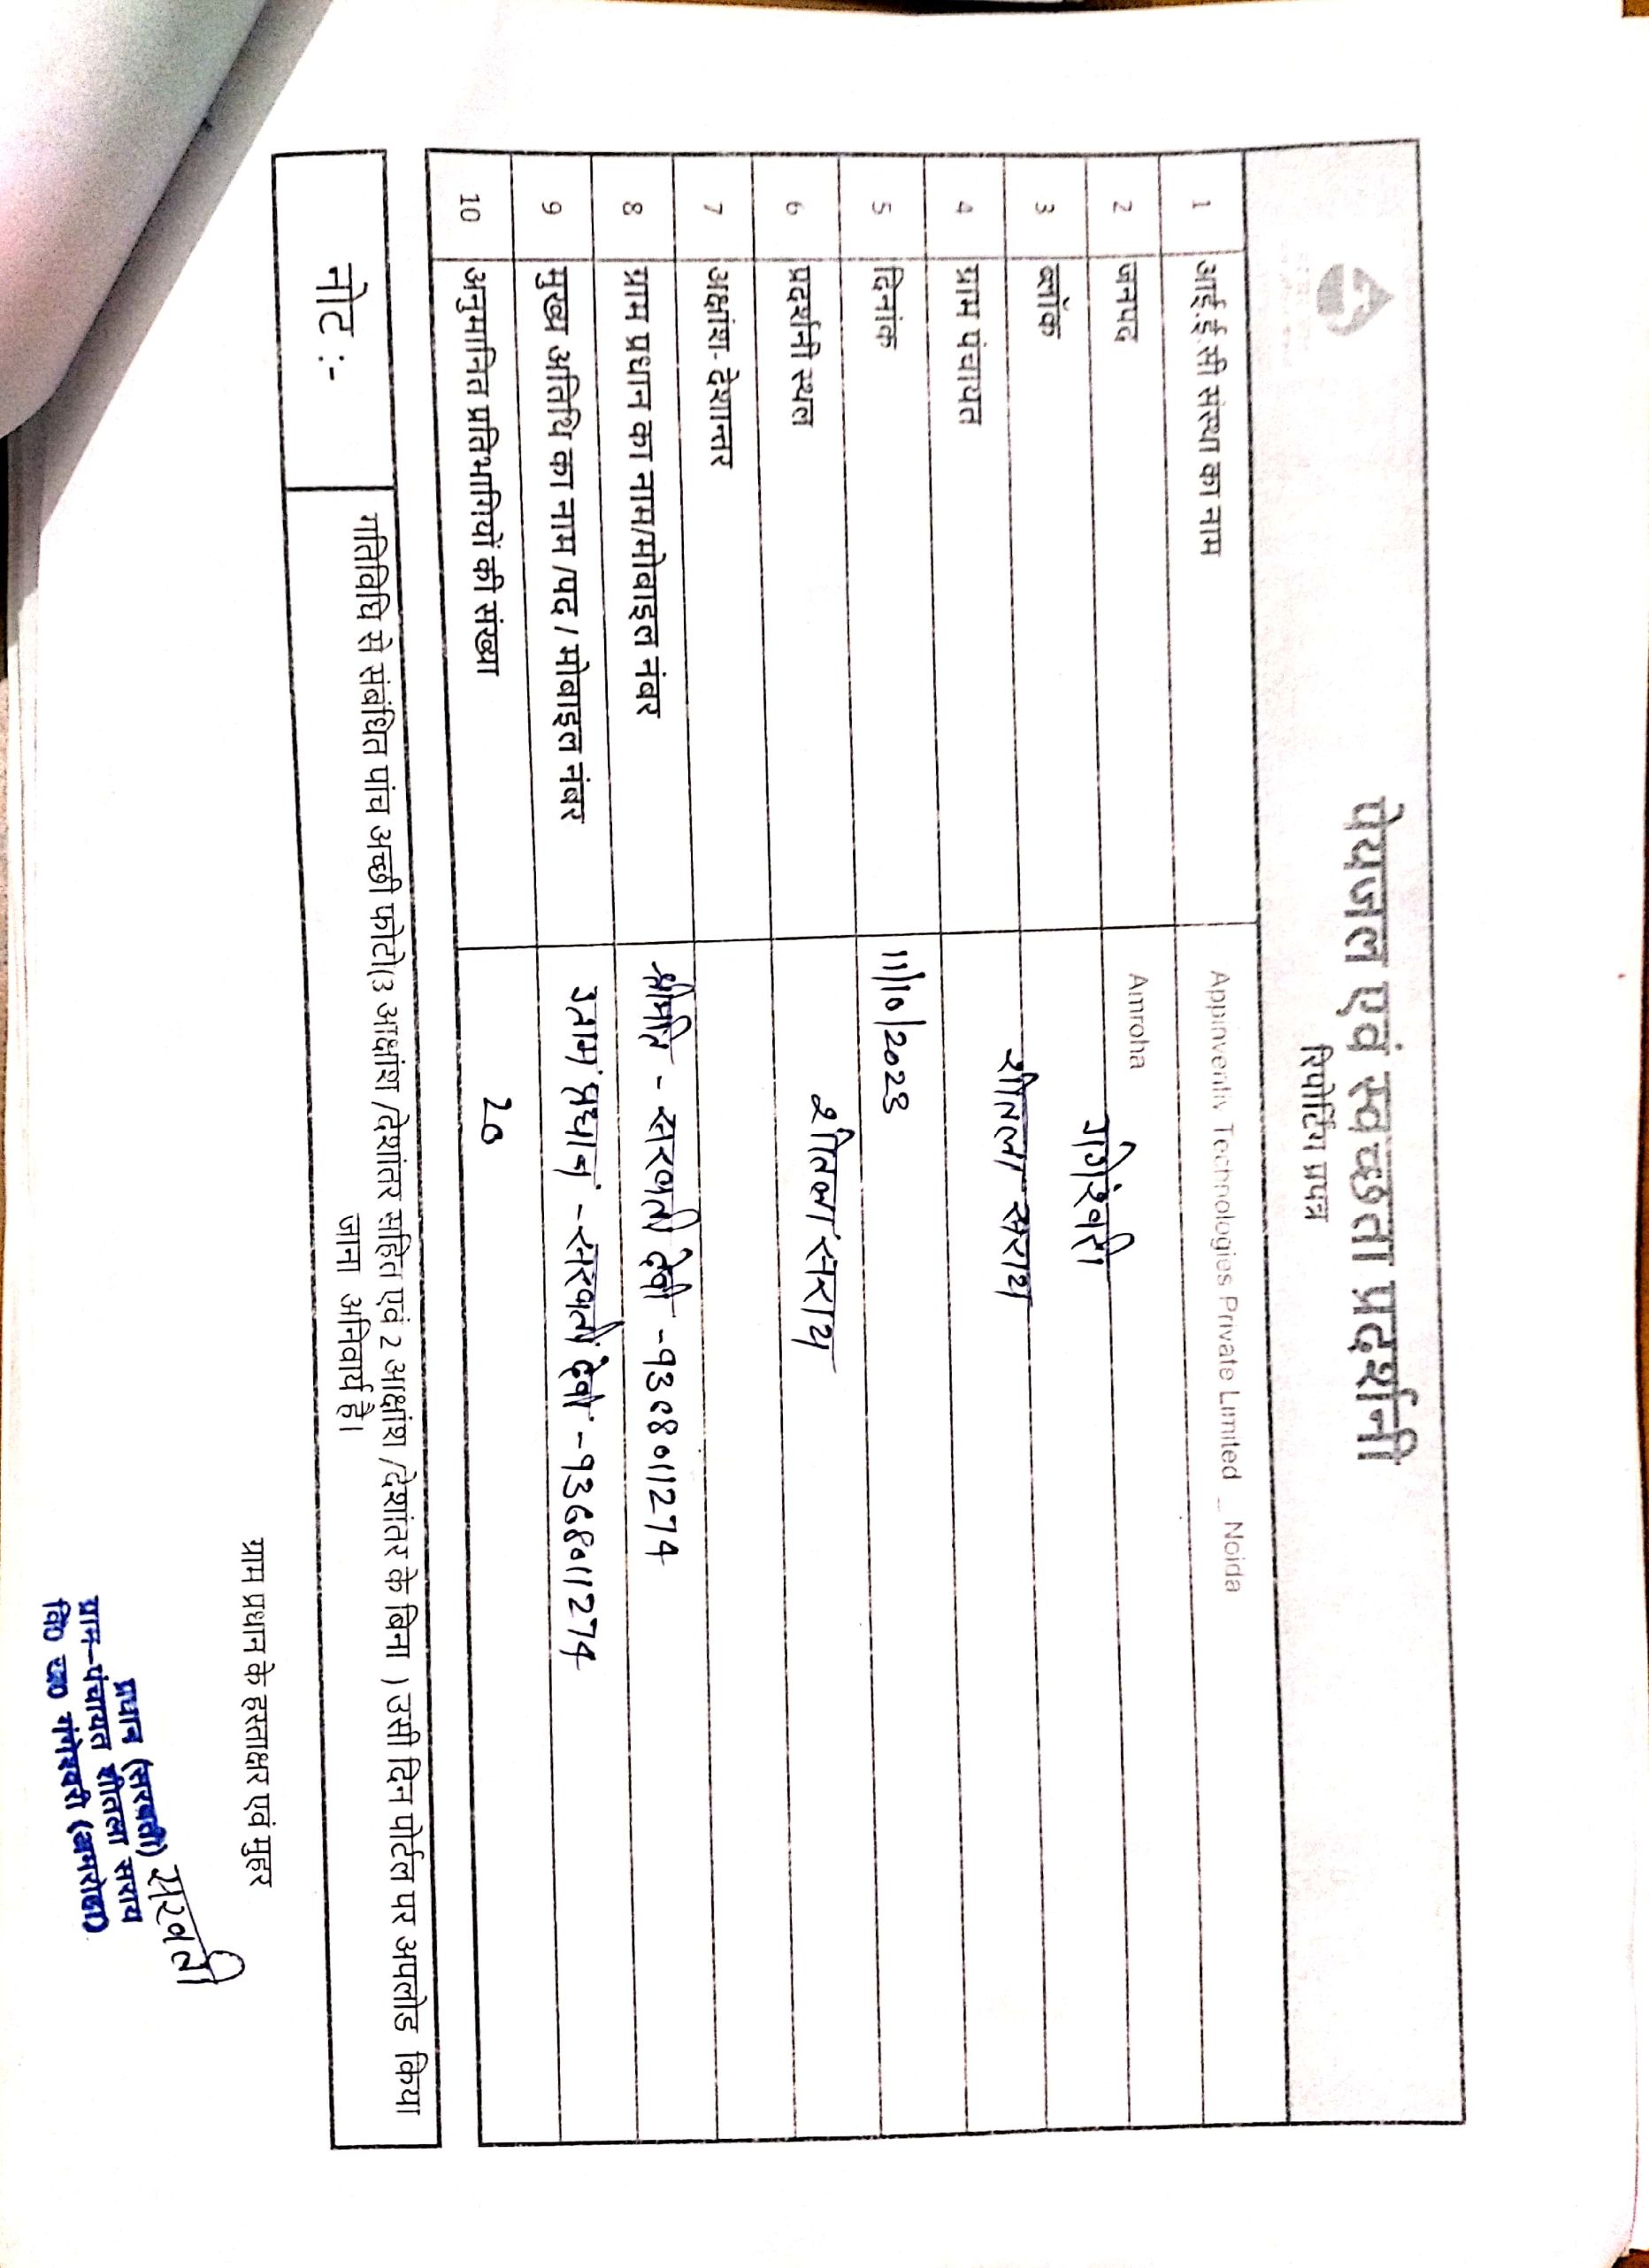 पेयजल एवं स्वच्छता प्रदर्शनी
रिपोर्टिंग प्रपत्र
1 आई.ई.सी संस्था का नाम Appinventiv Technologies Private Limited _ Noida
2 जनपद Amroha
3 ब्लॉक गंगेश्वरी
4 ग्राम पंचायत शीतला सराय
5 दिनांक 11/10/2023
6 प्रदर्शनी स्थल शीतला सराय
7 अक्षांश- देशान्तर
8 ग्राम प्रधान का नाम/मोबाइल नंबर श्रीमति - सरवती देवी -9368011274
9 मुख्य अतिथि का नाम /पद / मोबाइल नंबर प्रधान - सरवती देवी -9368011274
10 अनुमानित प्रतिभागियों की संख्या 20
नोट :- गतिविधि से संबंधित पांच अच्छी फोटो(3 आक्षांश /देशांतर सहित एवं 2 आक्षांश /देशांतर के बिना ) उसी दिन पोर्टल पर अपलोड किया
जाना अनिवार्य है।
ग्राम प्रधान के हस्ताक्षर एवं मुहर
सरवती
प्रधान (सरवती)
ग्राम-पंचायत शीतला सराय
वि0 ख0 गंगेश्वरी (अमरोहा)